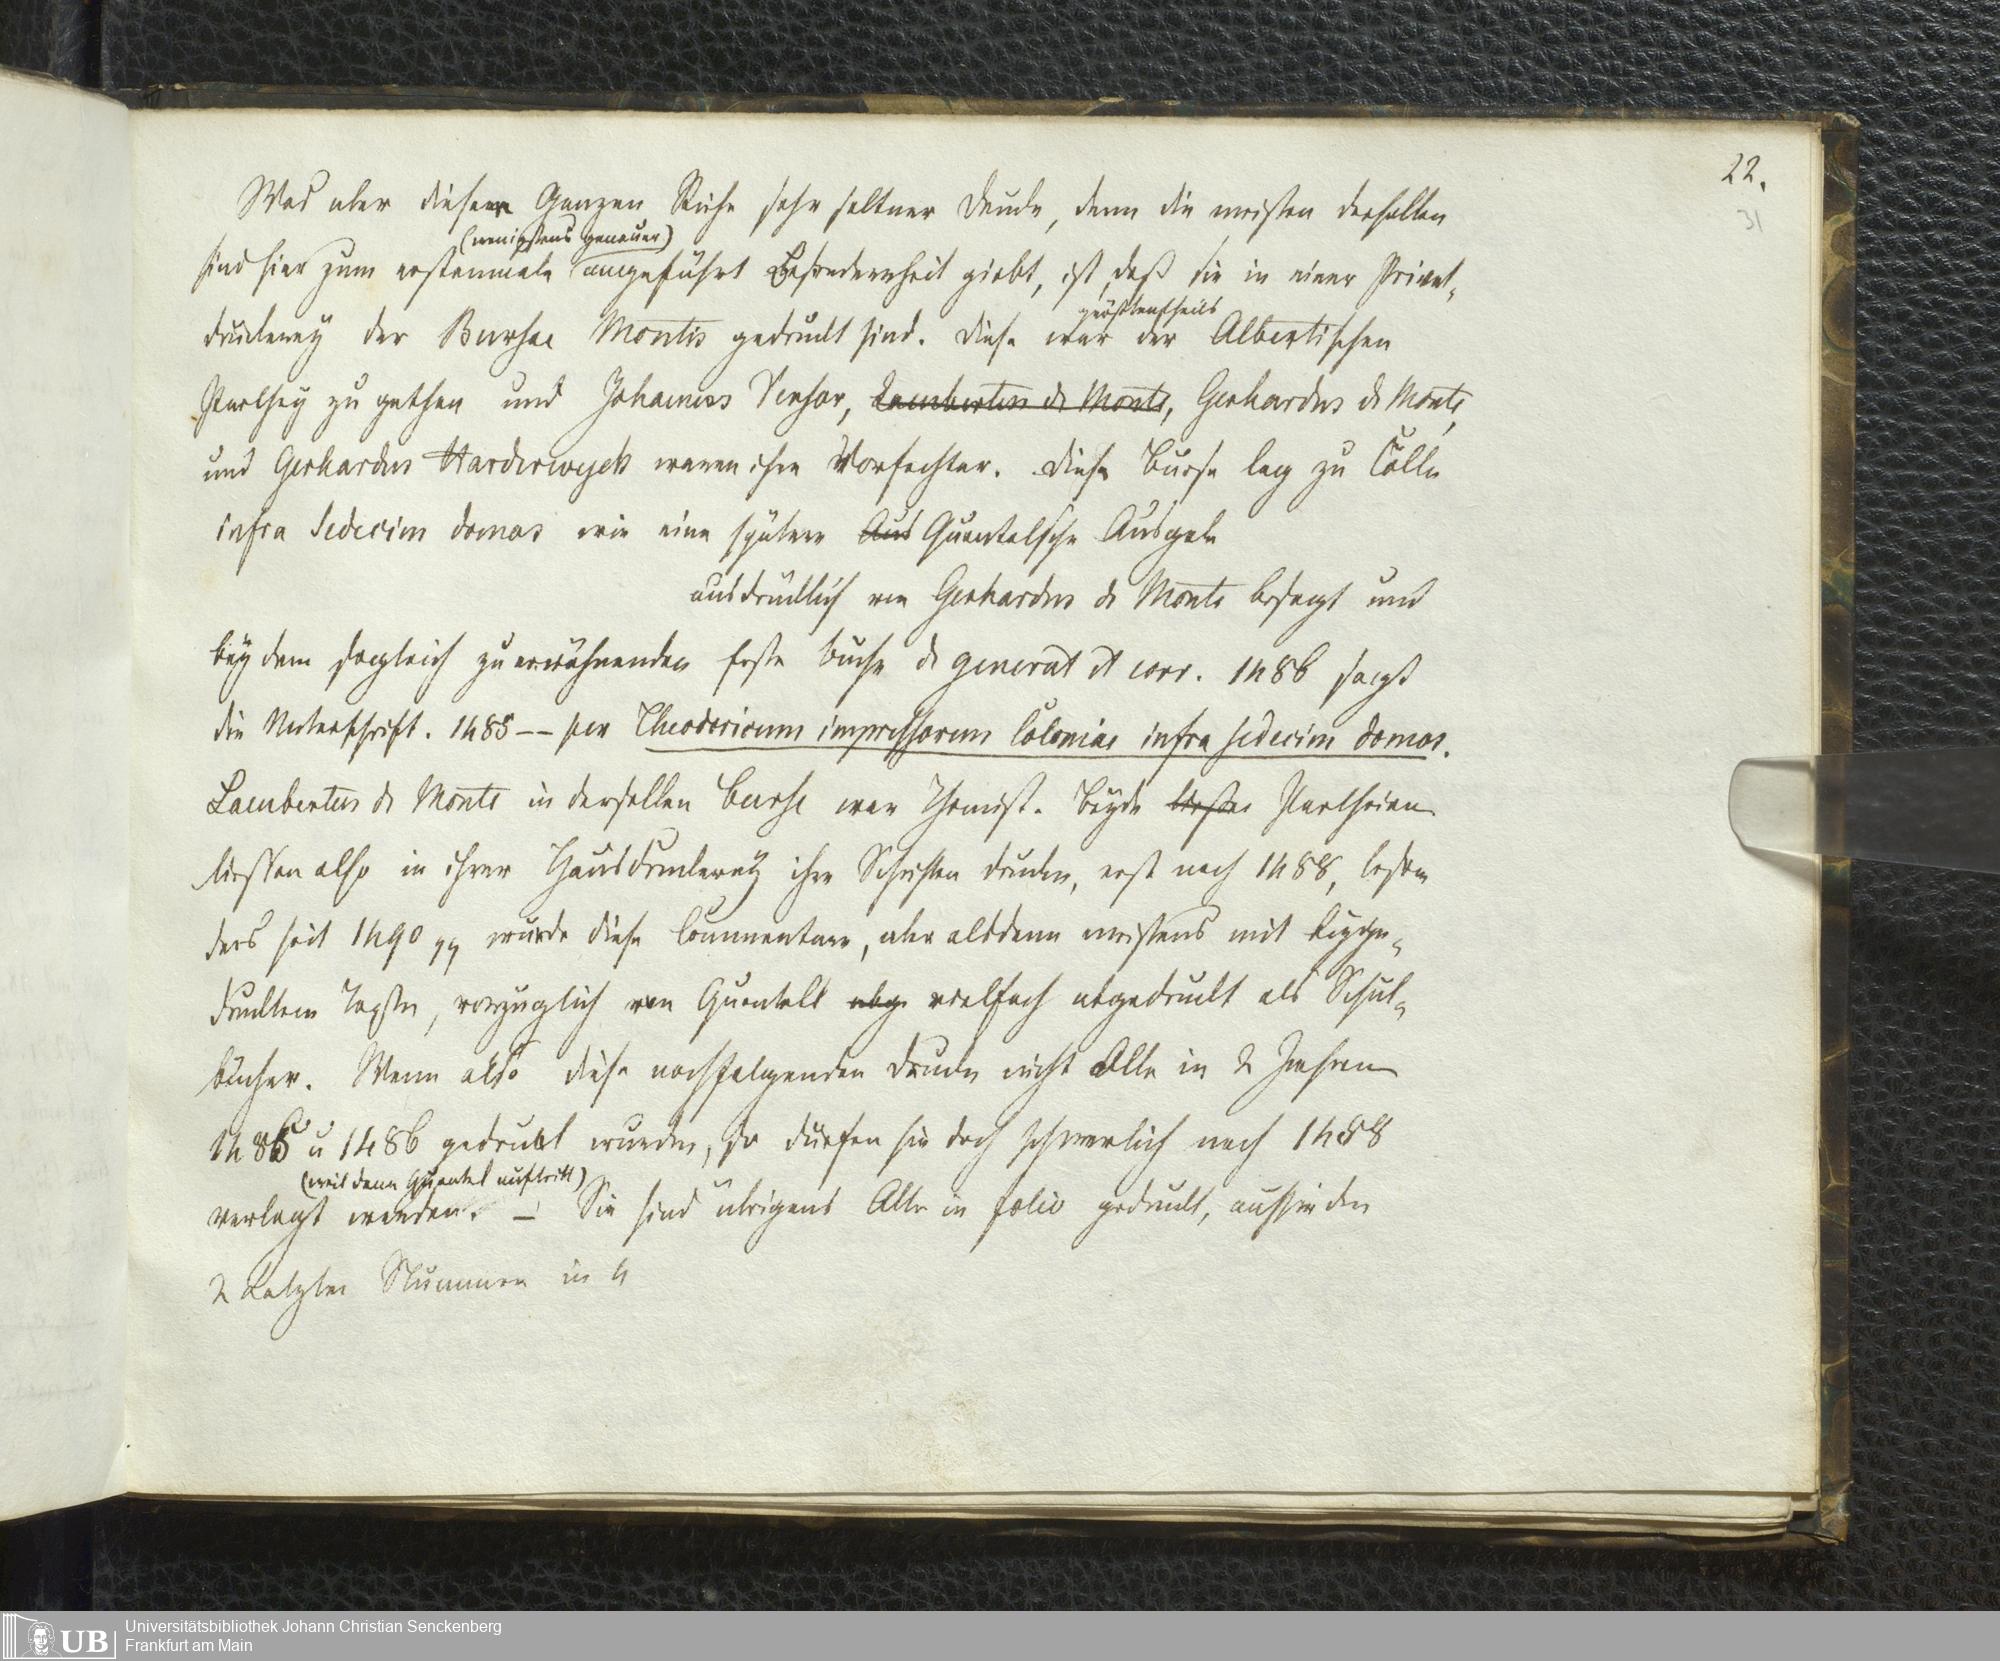 22.
31
Was aber dieser Ganzen Reihe sehr seltner Drucke, denn die meisten derselben
(wenigstens genauer)
sind hier zum erstenmale angeführt Besonderheit giebt, ist, daß sie in einer Privat-
druckerey der Bursae Montis gedruckt sind. Diese war der Albertischen
größtentheils
Parthey zu gethan und Johannes Versor, Lambertus de Monte, Gerhardus de Monte,
und Gerhardus Harderwyck waren ihre Vorfechter. Diese Burse lag zu Cölln
infra sedecim domos wie eine spätere Aus Quentelsche Ausgabe
ausdrücklich von Gerhardus de Monte besagt und
bey dem sogleich zu erwähnenden erste Buche de generat et corr. 1486 sagt
die Unterschrift. 1485 -- per Theodoricum impressorem Coloniae infra sedecim domos.
Lambertus de Monte in derselben Burse war Thomist. Beyde Partheien
liessen also in ihrer Hausdruckerey ihre Schriften drucken, erst nach 1488, beson
ders seit 1490 wurde diese Commentare, aber alsdann meistens mit beyge-
drucktem Texte, vorzuglich von Quentell abg vielfach abgedruckt als Schul-
bücher. Wenn also diese nachfolgenden Drucke nicht Alle in 2 Jahren
1485 u 1486 gedruckt wurden, so dürfen sie doch schwerlich nach 1488
(weil dann Quentel auftritt)
verlegt werden. — Sie sind übrigens Alle in folio gedruckt, ausser den
2 letzten Nummern in 4
Universitätsbibliothek Johann Christian Senckenberg
Frankfurt am Main
UB